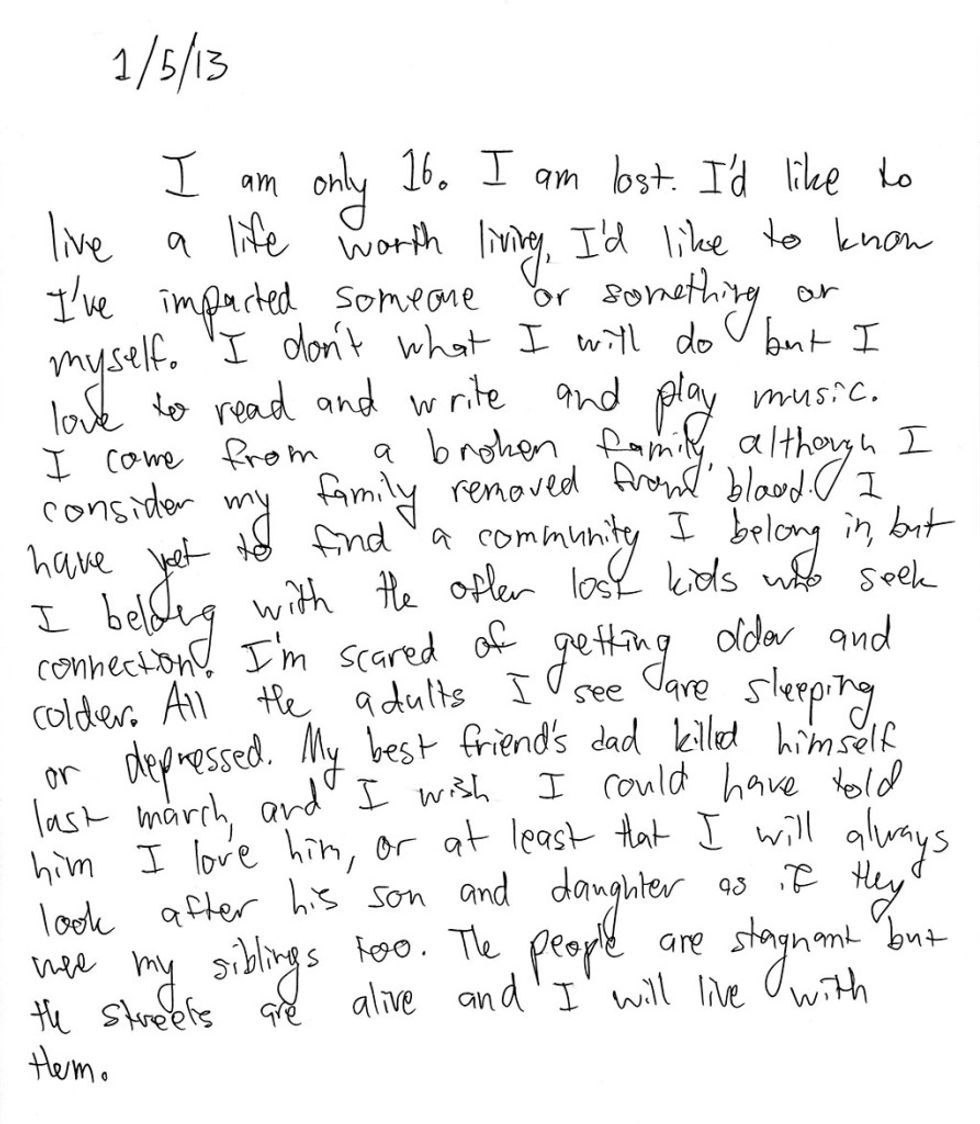 1/5/13
I am only 16. I am lost. I'd like to
live a life worth living, I'd like to know
I've impacted someone or something or
myself. I don't what I will do but I
love to read and write and play music.
I come from a broken family, although I
consider my family removed from blood. I
have yet to find a community I belong in, but
I belong with the other lost kids who seek
connection. I'm scared of getting older and
colder. All the adults I see are sleeping
or depressed. My best friend's dad killed himself
last march, and I wish I could have told
him I love him, or at least that I will always
look after his son and daughter as if they
were my siblings too. The people are stagnant but
the streets are alive and I will live with
them.